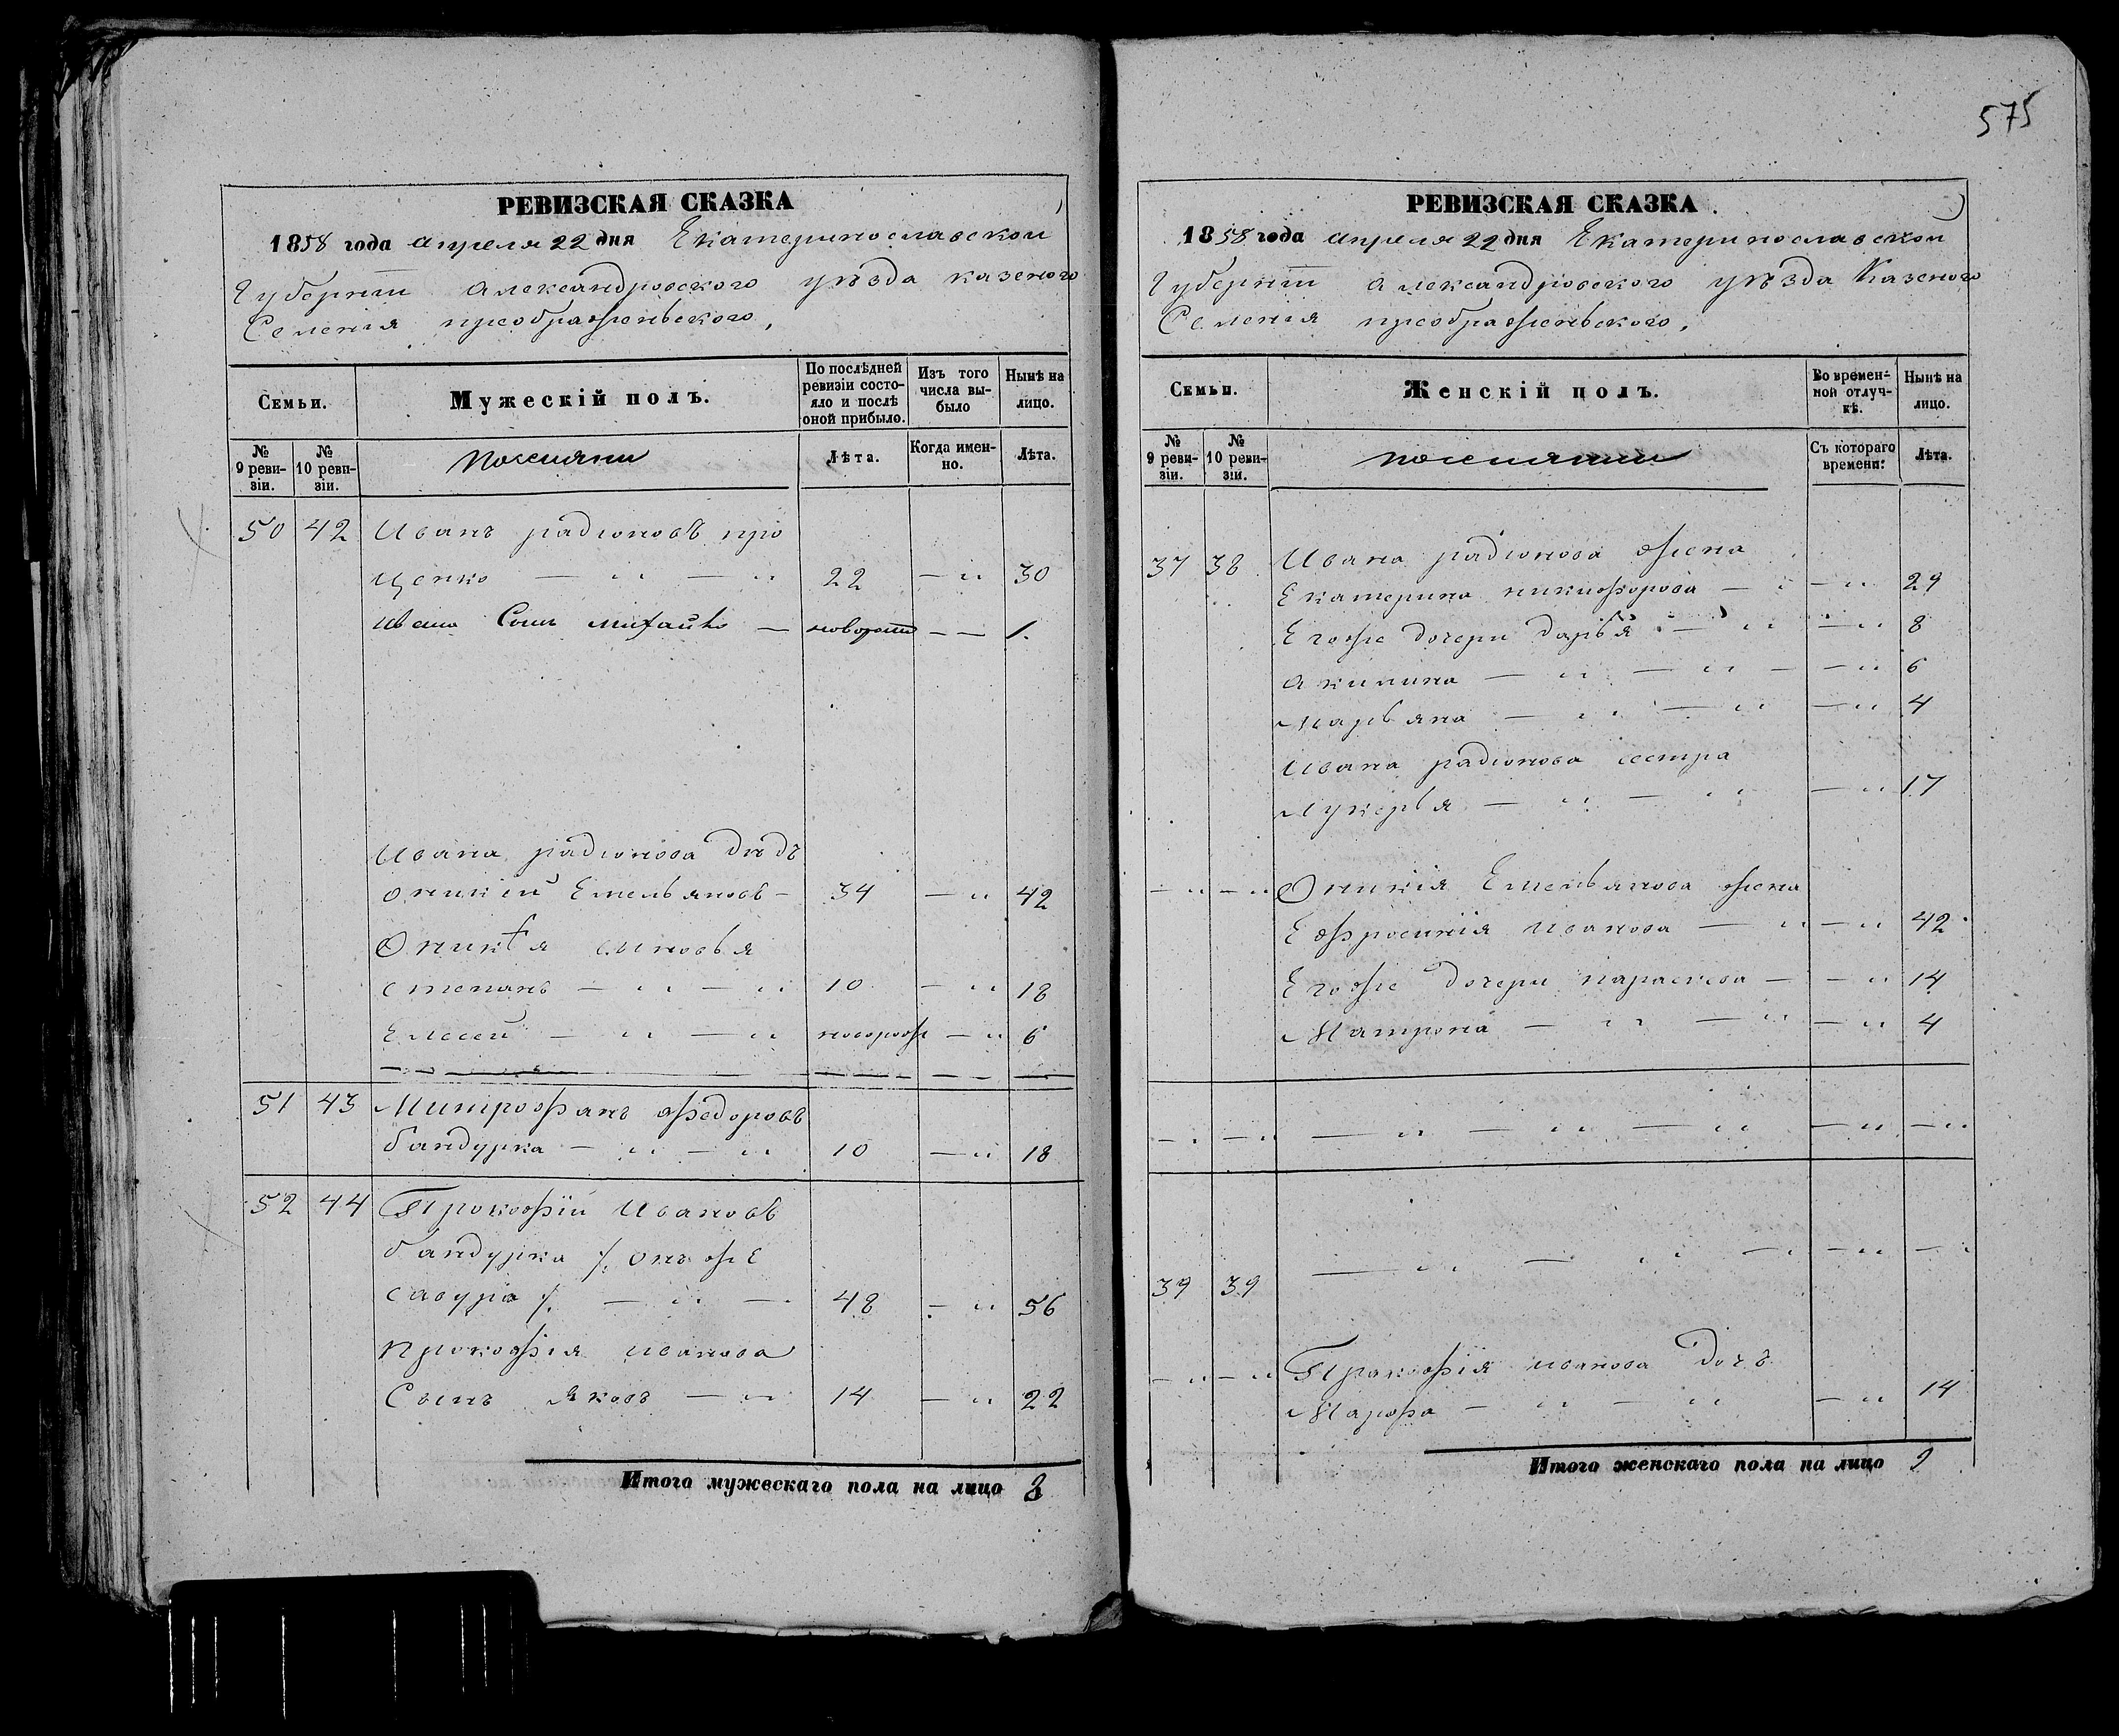 575
РЕВИЗСКАЯ СКАЗКА
1858 года апреля 22 дня Екатеринославской
Губерніи Александровского уѣзда казеного
Селенія преображеньского,
Семьи.
Мужескій полъ.
По послѣдней ревизіи состояло и послѣ оной прибыло.
Изъ того числа выбыло
Нынѣ на лицо.
№ 9 ревизіи.
№ 10 ревизіи.
поселяни
Лѣта.
Когда именно.
Лѣта.
50 42 Иванъ радіоновъ про
ценко — " — " 22 — " 30
Ивана Сынъ Михайло — новорож — — 1.
Ивана радионова дѣдъ
оникій Емельяновъ — 34 — " 42
Оникія синовья
степанъ — " — " 10 — " 18
Елесей — " — " новорож — " 6
51 43 Митрофанъ федоровъ
бандурка — " — " 10 — " 18
52 44 Прокофій Ивановъ
бандурка /. онъ же
савура /. — " — 48 — " 56
прокофія иванова
Сынъ Яковъ — " 14 — " 22
Итого мужескаго пола на лицо 8
РЕВИЗСКАЯ СКАЗКА.
1858 года апреля 22 дня Екатеринославской
Губерніи александровского уѣзда Казеного
Селенія преображеньского,
Семьи.
Женскій полъ.
Во временной отлучкѣ.
Нынѣ на лицо.
№ 9 ревизіи.
№ 10 ревизіи.
поселянки
Съ котораго времени.
Лѣта.
37 38 Ивана радіонова жена
Екатерина никифорова — " — " 29
Егоже дочери дарья — " — " 8
акилина — " — " — — " 6
Марьяна — " — " — " 4
Ивана радионова сестра
Лукерья — " — " — " 17
— " — " Оникія Емельянова жена
Ефросинія иванова — " — " 42
Егоже дочери параскева — — " 14
Матрона — " — " — " 4
— " — " — " — " — " — " — "
— " — " — " — " — "
39 39
— " — " Пракофія иванова дочъ
Марфа — " — " — " 14
Итого женскаго пола на лицо 9